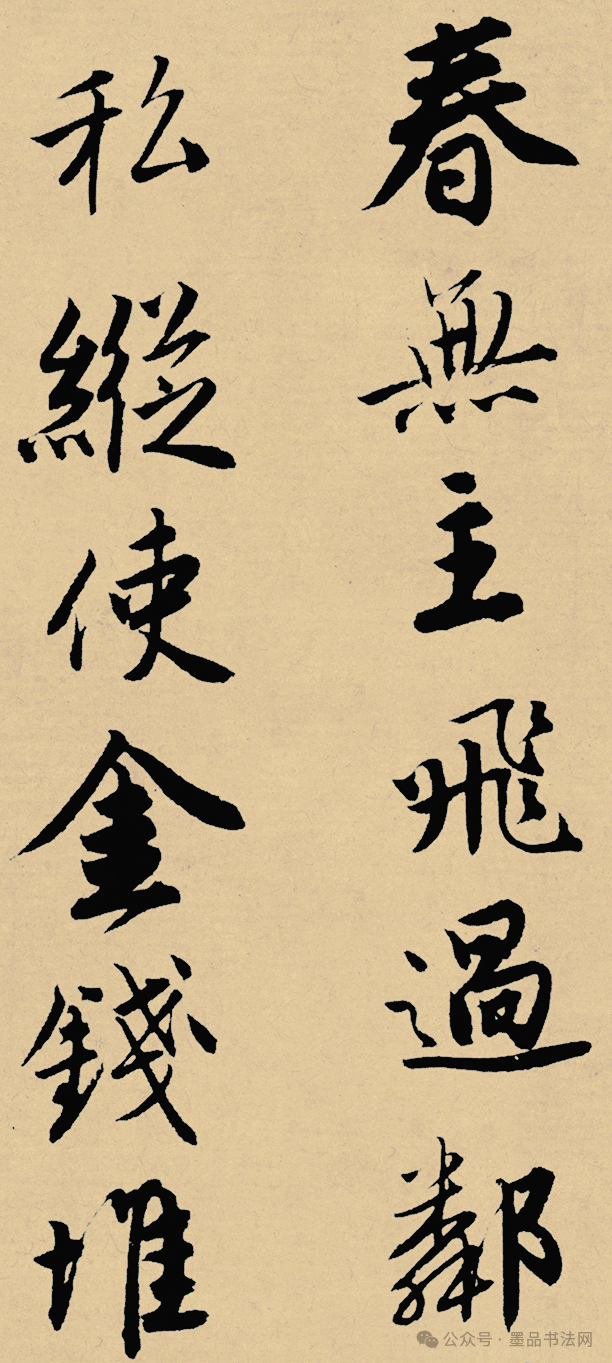 春無主飛過鄰
私縱使金錢堆
公众号·墨品书法网